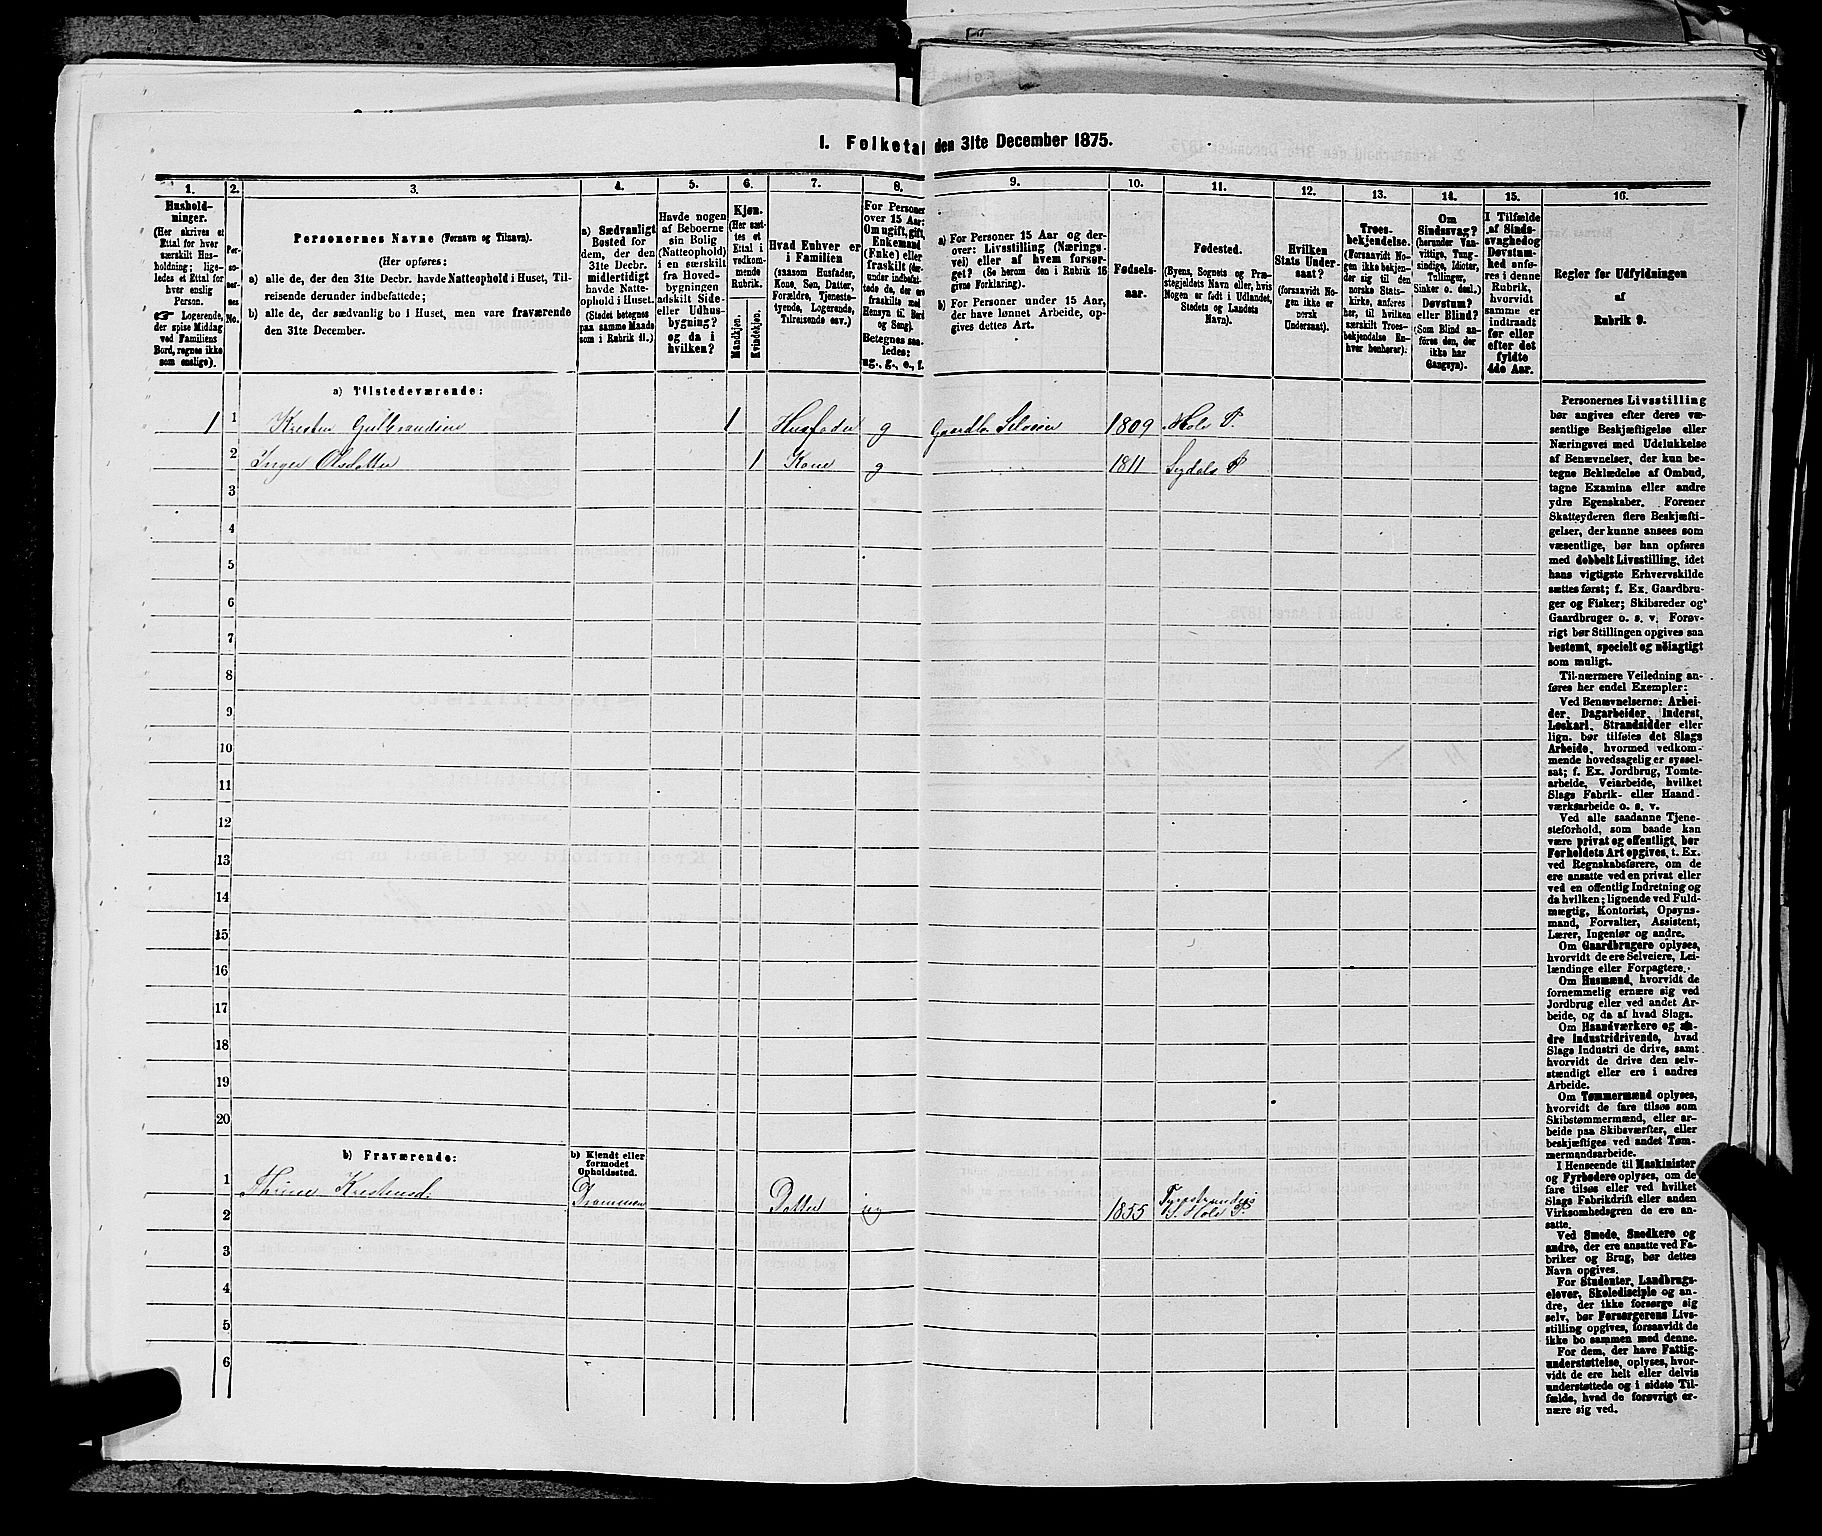 1. Folketal den 31te December 1875.
1.
2.
3.
4.
5.
6.
7.
8.
9.
10.
11.
12.
13.
14.
15.
16.
Hushold-
ninger.
(Her skrives et
Ettal for hver
særskilt Hus-
holdning; lige-
ledes et Ettal for
hver enslig
Person.
☞ Logerende,
der spise Middag
ved Familiens
Bord, regnes ikke
som enslige).
Per-
so-
ner-
nes
No.
Personernes Navne (Fornavn og Tilnavn).
(Her opføres:
a) alle de, der den 31te Decbr. havde Natteophold i Huset, Til-
reisende derunder indbefattede;
b) alle de, der sædvanlig bo i Huset, men vare fraværende
den 31te December.
a) Sædvanligt
Bosted for
dem, der den
31te Decbr.
midlertidigt
havde Natte-
ophold i Huset.
(Stedet betegnes
paa samme Maade
som i Rubrik 11.)
Havde nogen
af Beboerne
sin Bolig
(Natteophold)
i en særskilt
fra Hoved-
bygningen
adskilt Side-
eller Udhus-
bygning?
og da i
hvilken?
Kjøn.
(Her sæt-
tes et
Ettal i
vedkom-
mende
Rubrik.
Mandkjøn.
Kvindekjøn.
Hvad Enhver er
i Familien
(saasom Husfader,
Kone, Søn, Datter,
Forældre, Tjeneste-
tyende, Logerende,
Tilreisende osv.)
For Personer
over 15 Aar:
Om ugift, gift,
Enkemand
(Enke) eller
fraskilt (der-
under indbefat-
tede de, der ere
fraskilte med
Hensyn til Bord
og Seng).
Betegnes saa-
ledes:
ug., g., e., f.
a) For Personer 15 Aar og der-
over: Livsstilling (Nærings-
vei) eller af hvem forsør-
get? (Se herom den i Rubrik 16
givne Forklaring).
b) For Personer under 15 Aar,
der have lønnet Arbeide, op-
gives dettes Art.
Fødsels-
aar.
Fødested.
(Byens, Sognets og Præ-
stegjeldets Navn eller, hvis
Nogen er født i Udlandet,
Stedets og Landets
Navn).
Hvilken
Stats Under-
saat?
(forsaavidt No-
gen ikke er
norsk
Undersaat).
Troes-
bekjendelse.
(Forsaavidt No-
gen ikke bekjen-
der sig til den
norske Stats-
kirke, anføres
her, til hvilken
særskilt Troes-
bekjendelse En-
hver henhører).
Om
Sindssvag?
(herunder Van-
vittige, Tung-
sindige, Idioter,
Tullinger,
Sinker o. desl.)
Døvstum?
eller Blind?
(Som Blind an-
føres den, der
ikke har
Gangsyn).
I Tilfælde
af Sinds-
svaghed og
Døvstum-
hed anfø-
res i denne
Rubrik,
hvorvidt
samme er
indtraadt
før eller
efter det
fyldte
4de Aar.
Regler for Udfyldningen
af
Rubrik 9.
a) Tilstedeværende:
1 1 Kresten Gulbrandsen 1 Husfader g Gaardb. Seleier 1809 Hole P.
2 Inger Olsdatter 1 Kone g 1811 P
3
4
5
6
7
8
9
10
11
12
13
14
15
16
17
18
19
20
b) Fraværende:
b) Kjendt eller
formodet
Opholdssted.
1 Krestensd. Drammen Datter ug 1855 Hole P.
2
3
4
5
6
Personernes Livsstilling
bør angives efter deres væ-
sentlige Beskjæftigelse eller
Næringsvei med Udelukkelse
af Benævnelser, der kun be-
tegne Beklædelse af Ombud,
tagne Examina eller andre
ydre Egenskaber. Forener
Skatteyderen flere Beskjæfti-
gelser, der kunne ansees som
væsentlige, bør han opføres
med dobbelt Livsstilling, idet
hans vigtigste Erhvervskilde
sættes først; f. Ex. Gaardbru-
ger og Fisker; Skibsreder og
Gaardbruger o. s. v. Forøv-
rigt bør Stillingen opgives saa
bestemt, specielt og nøiagtigt
som muligt.
Til nærmere Veiledning an-
føres her endel Exempler:
Ved Benævnelserne: Arbei-
der, Dagarbeider, Inderst,
Løskarl, Strandsidder eller
lign. bør tilføies det Slags
Arbeide, hvormed vedkom-
mende hovedsagelig er syssel-
sat; f. Ex. Jordbrug, Tomte-
arbeide, Veiarbeide, hvilket
Slags Fabrik- eller Haand-
værksarbeide o. s. v.
Ved alle saadanne Tjene-
steforhold, som baade kan
være privat og offentligt, bør
Forholdets Art opgives, t. Ex.
ved Regnskabsførere, om de
ere ansatte ved en privat eller
ved en offentlig Indretning og
da hvilken; lignende ved Fuld-
mægtig, Kontorist, Opsyns-
mand, Forvalter, Assistent,
Lærer, Ingeniør og andre.
Om Gaardbrugere oplyses,
hvorvidt de ere Selveiere, Lei-
lændinge eller Forpagtere.
Om Husmænd, hvorvidt de
fornemmelig ernære sig ved
Jordbrug eller ved andet Ar-
beide, og da af hvad Slags.
Om Haandværkere og an-
dre Industridrivende, hvad
Slags Industri de drive, samt
hvorvidt de drive den selv-
stændigt eller ere i andres
Arbeide.
Om Tømmermænd oplyses,
hvorvidt de fare tilsøs som
Skibstømmermænd, eller ar-
beide paa Skibsværfter, eller
beskjæftiges ved andet Tøm-
mermandsarbeide.
I Henseende til Maskinister
og Fyrbødere oplyses, om de
fare tilsøs eller ved hvilket
Slags Fabrikdrift eller anden
Virksomhedsgren de ere an-
satte.
Ved Smede, Snedkere og
andre, der ere ansatte ved Fa-
briker og Brug, bør dettes
Navn opgives.
For Studenter, Landbrugs-
elever, Skoledisciple og an-
dre, der ikke forsørge sig
selv, bør Forsørgerens Livs-
stilling opgives, forsaavidt de
ikke bo sammen med denne.
For dem, der have Fattig-
understøttelse, oplyses, hvor-
vidt de ere helt eller delvis
understøttede og i sidste Til-
fælde, hvad de forøvrigt er-
nære sig ved.